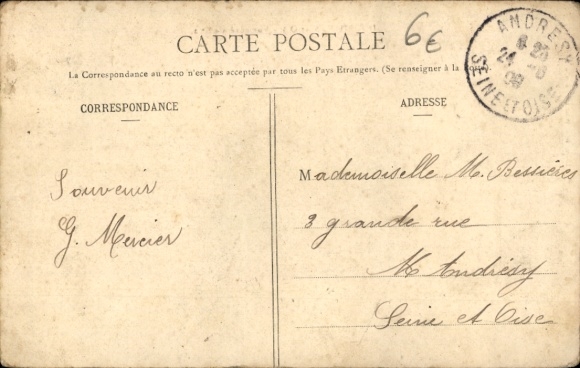 6€
CARTE POSTALE
La Correspondance au recto n'est pas acceptée par tous les Pays Etrangers. (Se renseigner à la
CORRESPONDANCE
ADRESSE
ANDRESY
24
SEINE ET OISE
Souvenir
G. Mercier
Mademoiselle M. Bessières
3 grande rue
Andrésy
Seine et Oise